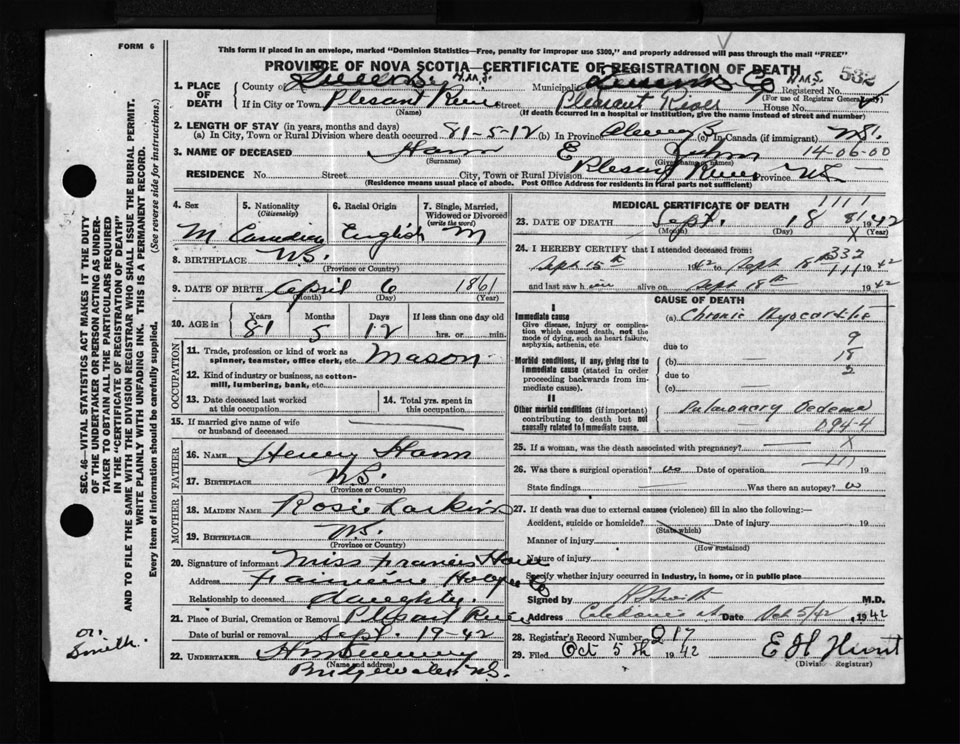 FORM 6
This form if placed in an envelope, marked "Dominion Statistics—Free, penalty for improper use $300," and properly addressed will pass through the mail "FREE"
PROVINCE OF NOVA SCOTIA—CERTIFICATE OF REGISTRATION OF DEATH
532
1. PLACE OF DEATH County of Queens Municipality Queens Co Registered No.
(For use of Registrar General only)
If in City or Town Plesant River Street Pleasent River House No.
(Name) (If death occurred in a hospital or institution, give the name instead of street and number)
2. LENGTH OF STAY (in years, months and days)
(a) In City, Town or Rural Division where death occurred 81-5-12 (b) In Province (c) In Canada (if immigrant) NS.
3. NAME OF DECEASED Hann E John 14-06-00
(Surname) (Given name or names)
RESIDENCE No. Street City, Town or Rural Division Plesant River Province NS
(Residence means usual place of abode. Post Office Address for residents in rural parts not sufficient)
4. Sex 5. Nationality (Citizenship) 6. Racial Origin 7. Single, Married, Widowed or Divorced (write the word)
M Canadian English M
8. BIRTHPLACE N.S.
(Province or County)
9. DATE OF BIRTH April 6 1861
(Month) (Day) (Year)
10. AGE in Years Months Days If less than one day old
81 5 12 hrs. or min.
OCCUPATION
11. Trade, profession or kind of work as spinner, teamster, office clerk, etc. Mason
12. Kind of industry or business, as cotton-mill, lumbering, bank, etc.
13. Date deceased last worked at this occupation
14. Total yrs. spent in this occupation
15. If married give name of wife or husband of deceased
FATHER
16. NAME Henry Hann
17. BIRTHPLACE N.S.
(Province or County)
MOTHER
18. MAIDEN NAME Rosie Larkin
19. BIRTHPLACE N.S.
(Province or County)
20. Signature of informant Miss Francis Hann
Address Hfx Co
Relationship to deceased daughty.
21. Place of Burial, Cremation or Removal Plesant River
Date of burial or removal Sept. 19-42
22. UNDERTAKER
(Name and address)
Bridgewater N.S.
MEDICAL CERTIFICATE OF DEATH
23. DATE OF DEATH Sept. 18 1942
(Month) (Day) (Year)
81
X
24. I HEREBY CERTIFY that I attended deceased from:
332
Sept 15th 1942 to Sept 18th 1942
and last saw h im alive on Sept 18th 1942
CAUSE OF DEATH
I
Immediate cause
Give disease, injury or complication which caused death, not the mode of dying, such as heart failure, asphyxia, asthenia, etc.
(a) Chronic Myocarditis
due to
Morbid conditions, if any, giving rise to immediate cause (stated in order proceeding backwards from immediate cause).
(b)
due to
(c)
9
18
2
II
Other morbid conditions (if important) contributing to death but not causally related to immediate cause.
Pulmonary Oedema
D94-4
25. If a woman, was the death associated with pregnancy?
X
26. Was there a surgical operation? no Date of operation 19
State findings Was there an autopsy? no
27. If death was due to external causes (violence) fill in also the following:
Accident, suicide or homicide? Date of injury 19
(State which)
Manner of injury
(How sustained)
Nature of injury
Specify whether injury occurred in industry, in home, or in public place
Signed by Smith M.D.
Address Caledonia Date Oct 5/42 1942
28. Registrar's Record Number 217
29. Filed Oct 5th 1942 E H Hunt
(Division Registrar)
SEC. 46—VITAL STATISTICS ACT MAKES IT THE DUTY
OF THE UNDERTAKER OR PERSON ACTING AS UNDERTAKER TO OBTAIN ALL THE PARTICULARS REQUIRED
IN THE "CERTIFICATE OF REGISTRATION OF DEATH"
AND TO FILE THE SAME WITH THE DIVISION REGISTRAR WHO SHALL ISSUE THE BURIAL PERMIT.
WRITE PLAINLY WITH UNFADING INK. THIS IS A PERMANENT RECORD.
Every item of information should be carefully supplied. (See reverse side for instructions.)
Dr.
Smith.